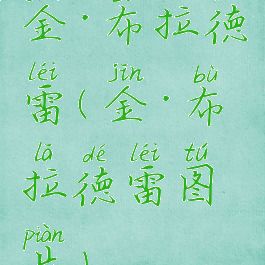 金·布拉德
léi jīn bù
雷(金·布
lā dé léi tú
拉德雷图
piàn
片)